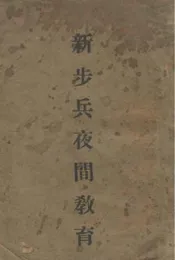 新步兵夜間教育